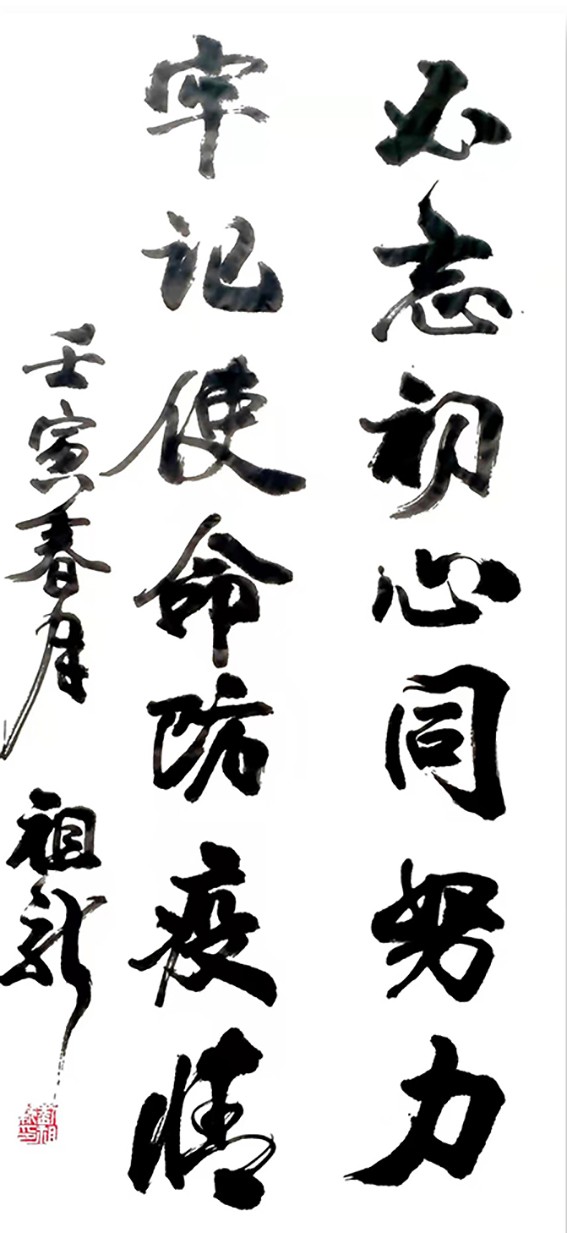 不忘初心同努力
牢记使命防疫情
壬寅春月 祖新